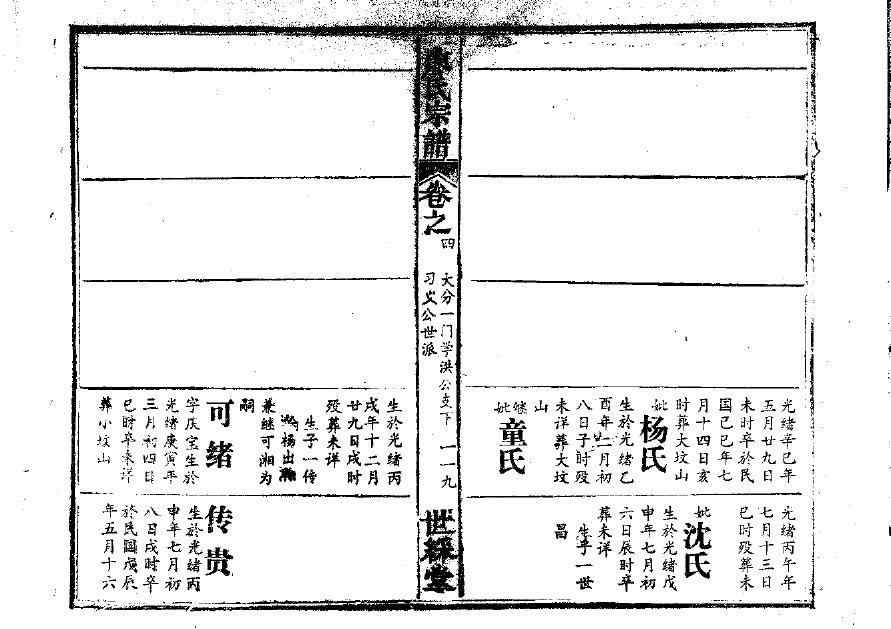 光绪辛巳年
五月廿九日
未时卒於民
国己巳年七
月十四日亥
时葬大坟山
妣杨氏
生於光绪乙
酉年二月初
八日子时殁
未详葬大坟
山
继妣童氏
光绪丙午年
七月十三日
巳时殁葬未
妣沈氏
生於光绪戊
申年七月初
六日辰时卒
葬未详
生子一世
昌
廖氏宗譜
卷之四
大分一门学洪公支下
习义公世派
一一九
世綵堂
生於光绪丙
戌年十二月
廿九日戌时
殁葬未详
生子一传
杨出
兼继可湘为
嗣
可绪
字庆堂生於
光绪庚寅年
三月初四日
巳时卒未详
葬小坟山
传贵
生於光绪丙
申年七月初
八日戌时卒
於民国戊辰
年五月十六